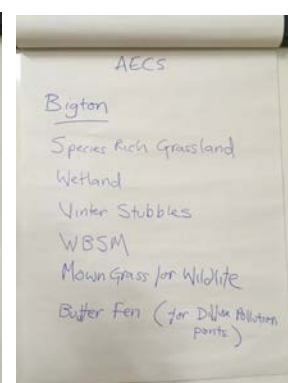 AECS
Bigton
Species Rich Grassland
Wetland
Winter Stubbles
WBSM
Mown Grass for Wildlife
Buffer Fen (for Diffuse Pollution
points)